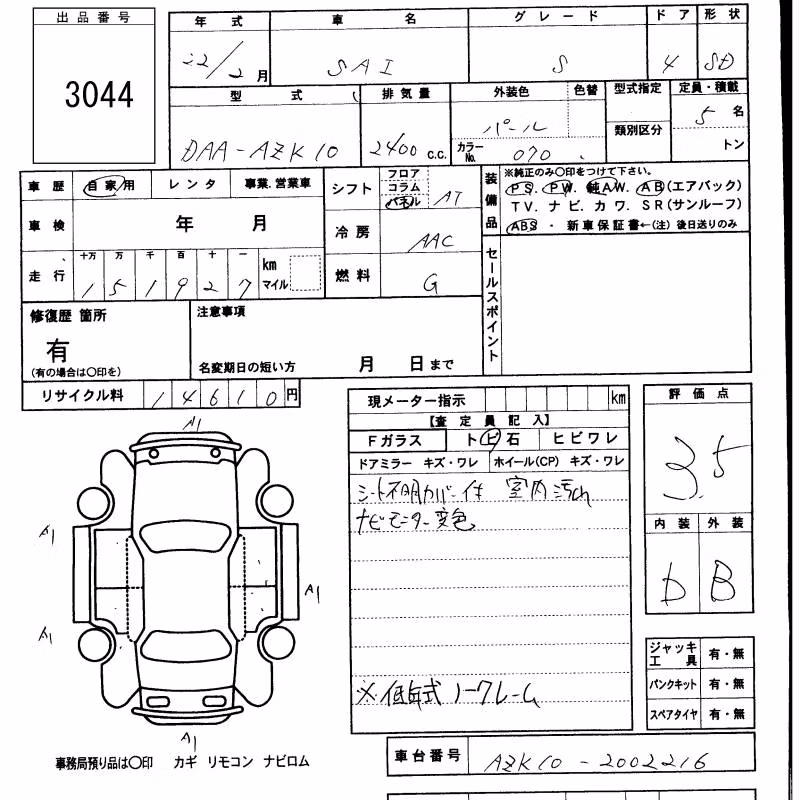 出品番号
3044
年式 車名 グレード ドア 形状
22/2月 SAI S 4 SD
型式 排気量 外装色 色替 型式指定 定員・積載
DAA-AZK10 2400 c.c. パール 5名
カラーNo. 070 類別区分 トン
車歴 自家用 レンタ 事業.営業車
車検 年 月
走行 十万 万 千 百 十 一 km マイル
151927
シフト フロア コラム パネル AT
冷房 AAC
燃料 G
装備品
※純正のみ〇印をつけて下さい。
PS. PW. 純AW. AB(エアバック)
TV. ナビ. カワ. SR(サンルーフ)
ABS ・ 新車保証書←(注)後日送りのみ
セールスポイント
修復歴 箇所
有
(有の場合は〇印を)
注意事項
名変期日の短い方 月 日まで
リサイクル料 14610円
現メーター指示 km
【査定員記入】
Fガラス トビ石 ヒビワレ
ドアミラー キズ・ワレ ホイール(CP) キズ・ワレ
シート不明カバー付 室内汚れ
ナビモニター変色
※低年式ノークレーム
評価点
3.5
内装 外装
D B
A1
A1
A1
A1
A1
ジャッキ工具 有・無
パンクキット 有・無
スペアタイヤ 有・無
事務局預り品は〇印 カギ リモコン ナビロム
車台番号 AZK10-2002216